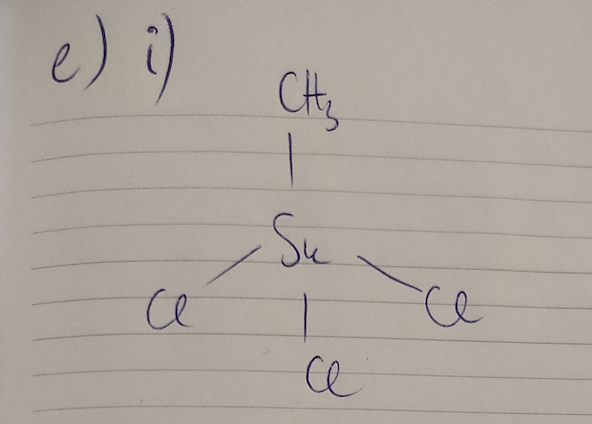 e) i)
CH₃
Sn
Cl Cl
Cl